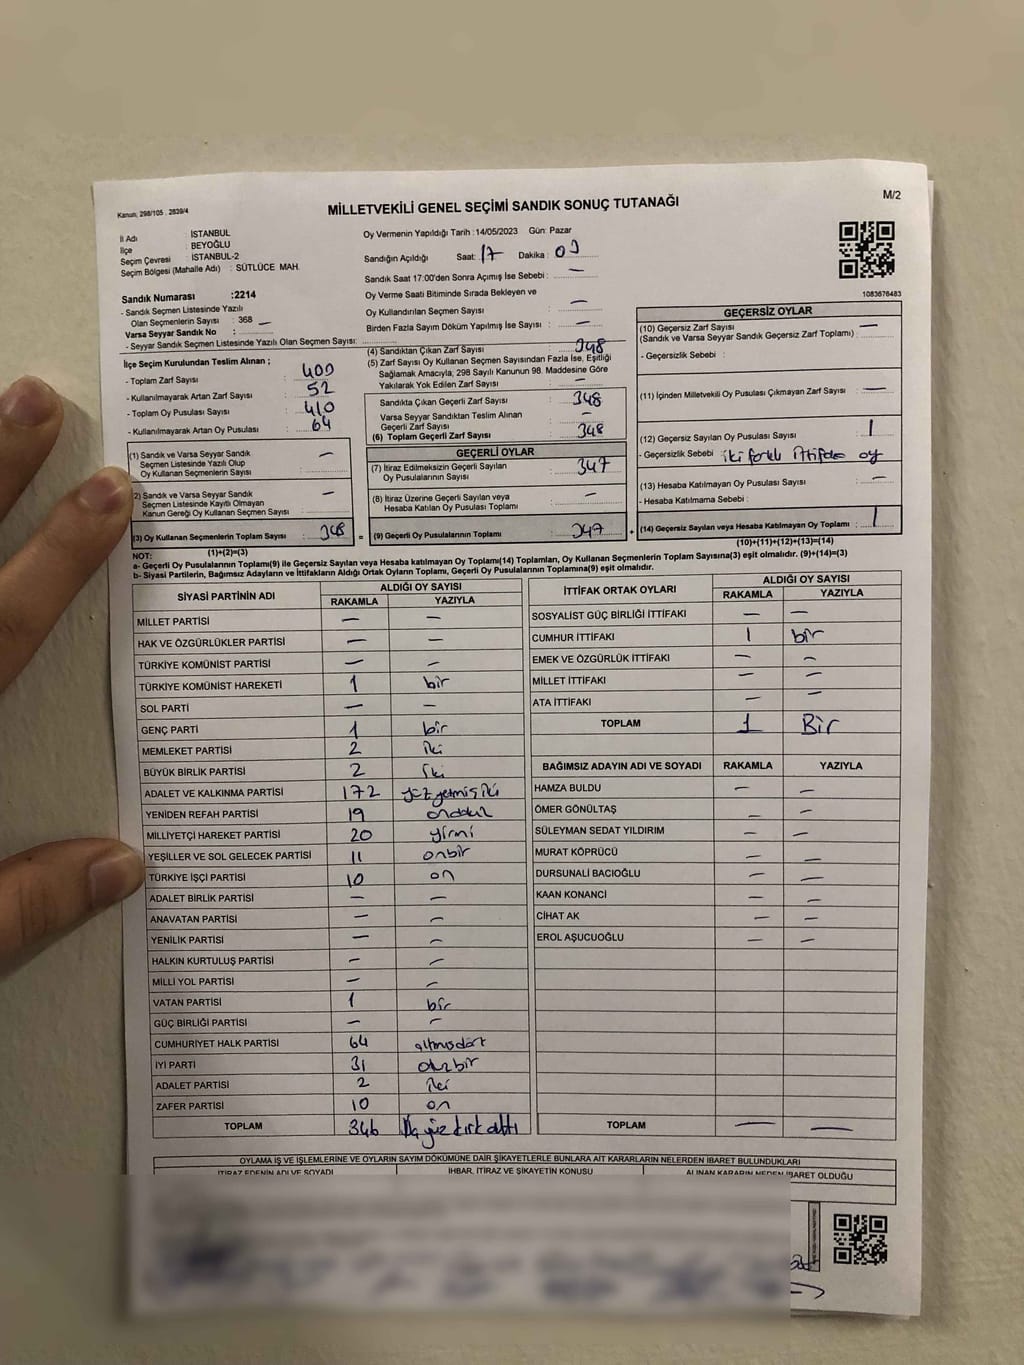 Kanun; 298/105 . 2839/4
M/2
MİLLETVEKİLİ GENEL SEÇİMİ SANDIK SONUÇ TUTANAĞI
İl Adı : İSTANBUL
İlçe : BEYOĞLU
Seçim Çevresi : İSTANBUL-2
Seçim Bölgesi (Mahalle Adı) : SÜTLÜCE MAH.
Oy Vermenin Yapıldığı Tarih :14/05/2023 Gün: Pazar
Sandığın Açıldığı Saat: 17 Dakika:
Sandık Saat 17:00'den Sonra Açımış İse Sebebi : —
Oy Verme Saati Bitiminde Sırada Bekleyen ve
Oy Kullandırılan Seçmen Sayısı : —
Birden Fazla Sayım Döküm Yapılmış İse Sayısı : —
1083676483
Sandık Numarası :2214
- Sandık Seçmen Listesinde Yazılı
Olan Seçmenlerin Sayısı : 368
Varsa Seyyar Sandık No :
- Seyyar Sandık Seçmen Listesinde Yazılı Olan Seçmen Sayısı:
İlçe Seçim Kurulundan Teslim Alınan ;
- Toplam Zarf Sayısı : 400
- Kullanılmayarak Artan Zarf Sayısı : 52
- Toplam Oy Pusulası Sayısı : 410
- Kullanılmayarak Artan Oy Pusulası : 64
(1) Sandık ve Varsa Seyyar Sandık
Seçmen Listesinde Yazılı Olup
Oy Kullanan Seçmenlerin Sayısı : —
2) Sandık ve Varsa Seyyar Sandık
Seçmen Listesinde Kayıtlı Olmayan
Kanun Gereği Oy Kullanan Seçmen Sayısı : —
(3) Oy Kullanan Seçmenlerin Toplam Sayısı : 348
(1)+(2)=(3)
(4) Sandıktan Çıkan Zarf Sayısı : 348
(5) Zarf Sayısı Oy Kullanan Seçmen Sayısından Fazla İse, Eşitliği
Sağlamak Amacıyla, 298 Sayılı Kanunun 98. Maddesine Göre
Yakılarak Yok Edilen Zarf Sayısı : —
Sandıkta Çıkan Geçerli Zarf Sayısı : 348
Varsa Seyyar Sandıktan Teslim Alınan
Geçerli Zarf Sayısı : —
(6) Toplam Geçerli Zarf Sayısı : 348
GEÇERLİ OYLAR
(7) İtiraz Edilmeksizin Geçerli Sayılan
Oy Pusulalarının Sayısı : 347
(8) İtiraz Üzerine Geçerli Sayılan veya
Hesaba Katılan Oy Pusulası Toplamı : —
= (9) Geçerli Oy Pusulalarının Toplamı : 347 +
GEÇERSİZ OYLAR
(10) Geçersiz Zarf Sayısı : —
(Sandık ve Varsa Seyyar Sandık Geçersiz Zarf Toplamı)
- Geçersizlik Sebebi :
(11) İçinden Milletvekili Oy Pusulası Çıkmayan Zarf Sayısı : —
(12) Geçersiz Sayılan Oy Pusulası Sayısı : 1
- Geçersizlik Sebebi : iki farklı ittifaka oy
(13) Hesaba Katılmayan Oy Pusulası Sayısı : —
- Hesaba Katılmama Sebebi :
(14) Geçersiz Sayılan veya Hesaba Katılmayan Oy Toplamı : 1
(10)+(11)+(12)+(13)=(14)
NOT:
a- Geçerli Oy Pusulalarının Toplamı(9) ile Geçersiz Sayılan veya Hesaba katılmayan Oy Toplamı(14) Toplamları, Oy Kullanan Seçmenlerin Toplam Sayısına(3) eşit olmalıdır. (9)+(14)=(3)
b- Siyasi Partilerin, Bağımsız Adayların ve İttifakların Aldığı Ortak Oyların Toplamı, Geçerli Oy Pusulalarının Toplamına(9) eşit olmalıdır.
SİYASİ PARTİNİN ADI ALDIĞI OY SAYISI
RAKAMLA YAZIYLA
MİLLET PARTİSİ — —
HAK VE ÖZGÜRLÜKLER PARTİSİ — —
TÜRKİYE KOMÜNİST PARTİSİ — —
TÜRKİYE KOMÜNİST HAREKETİ 1 bir
SOL PARTİ — —
GENÇ PARTİ 1 bir
MEMLEKET PARTİSİ 2 iki
BÜYÜK BİRLİK PARTİSİ 2 iki
ADALET VE KALKINMA PARTİSİ 172 yüzyetmişiki
YENİDEN REFAH PARTİSİ 19 ondokuz
MİLLİYETÇİ HAREKET PARTİSİ 20 yirmi
YEŞİLLER VE SOL GELECEK PARTİSİ 11 onbir
TÜRKİYE İŞÇİ PARTİSİ 10 on
ADALET BİRLİK PARTİSİ — —
ANAVATAN PARTİSİ — —
YENİLİK PARTİSİ — —
HALKIN KURTULUŞ PARTİSİ — —
MİLLİ YOL PARTİSİ — —
VATAN PARTİSİ 1 bir
GÜÇ BİRLİĞİ PARTİSİ — —
CUMHURİYET HALK PARTİSİ 64 altmışdört
İYİ PARTİ 31 otuzbir
ADALET PARTİSİ 2 iki
ZAFER PARTİSİ 10 on
TOPLAM 346 Üç yüz kırk altı
İTTİFAK ORTAK OYLARI ALDIĞI OY SAYISI
RAKAMLA YAZIYLA
SOSYALİST GÜÇ BİRLİĞİ İTTİFAKI — —
CUMHUR İTTİFAKI 1 bir
EMEK VE ÖZGÜRLÜK İTTİFAKI — —
MİLLET İTTİFAKI — —
ATA İTTİFAKI — —
TOPLAM 1 Bir
BAĞIMSIZ ADAYIN ADI VE SOYADI RAKAMLA YAZIYLA
HAMZA BULDU — —
ÖMER GÖNÜLTAŞ — —
SÜLEYMAN SEDAT YILDIRIM — —
MURAT KÖPRÜCÜ — —
DURSUNALİ BACIOĞLU — —
KAAN KONANCİ — —
CİHAT AK — —
EROL AŞUCUOĞLU — —
TOPLAM — —
OYLAMA İŞ VE İŞLEMLERİNE VE OYLARIN SAYIM DÖKÜMÜNE DAİR ŞİKAYETLERLE BUNLARA AİT KARARLARIN NELERDEN İBARET BULUNDUKLARI
İTİRAZ EDENİN ADI VE SOYADI İHBAR, İTİRAZ VE ŞİKAYETİN KONUSU ALINAN KARARIN NEDEN İBARET OLDUĞU